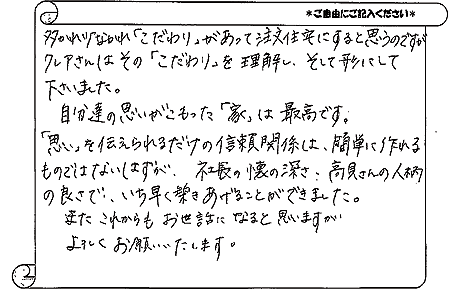 *ご自由にご記入ください*
多かれ少なかれ「こだわり」があって注文住宅にすると思うのですが
クレアさんはその「こだわり」を理解し、そして形にして
下さいました。
自分達の思いがこもった「家」は最高です。
「思い」を伝えられるだけの信頼関係は、簡単に作れる
ものではないはずが、社長の懐の深さ、高見さんの人柄
の良さで、いち早く築きあげることができました。
またこれからもお世話になると思いますが
よろしくお願いいたします。